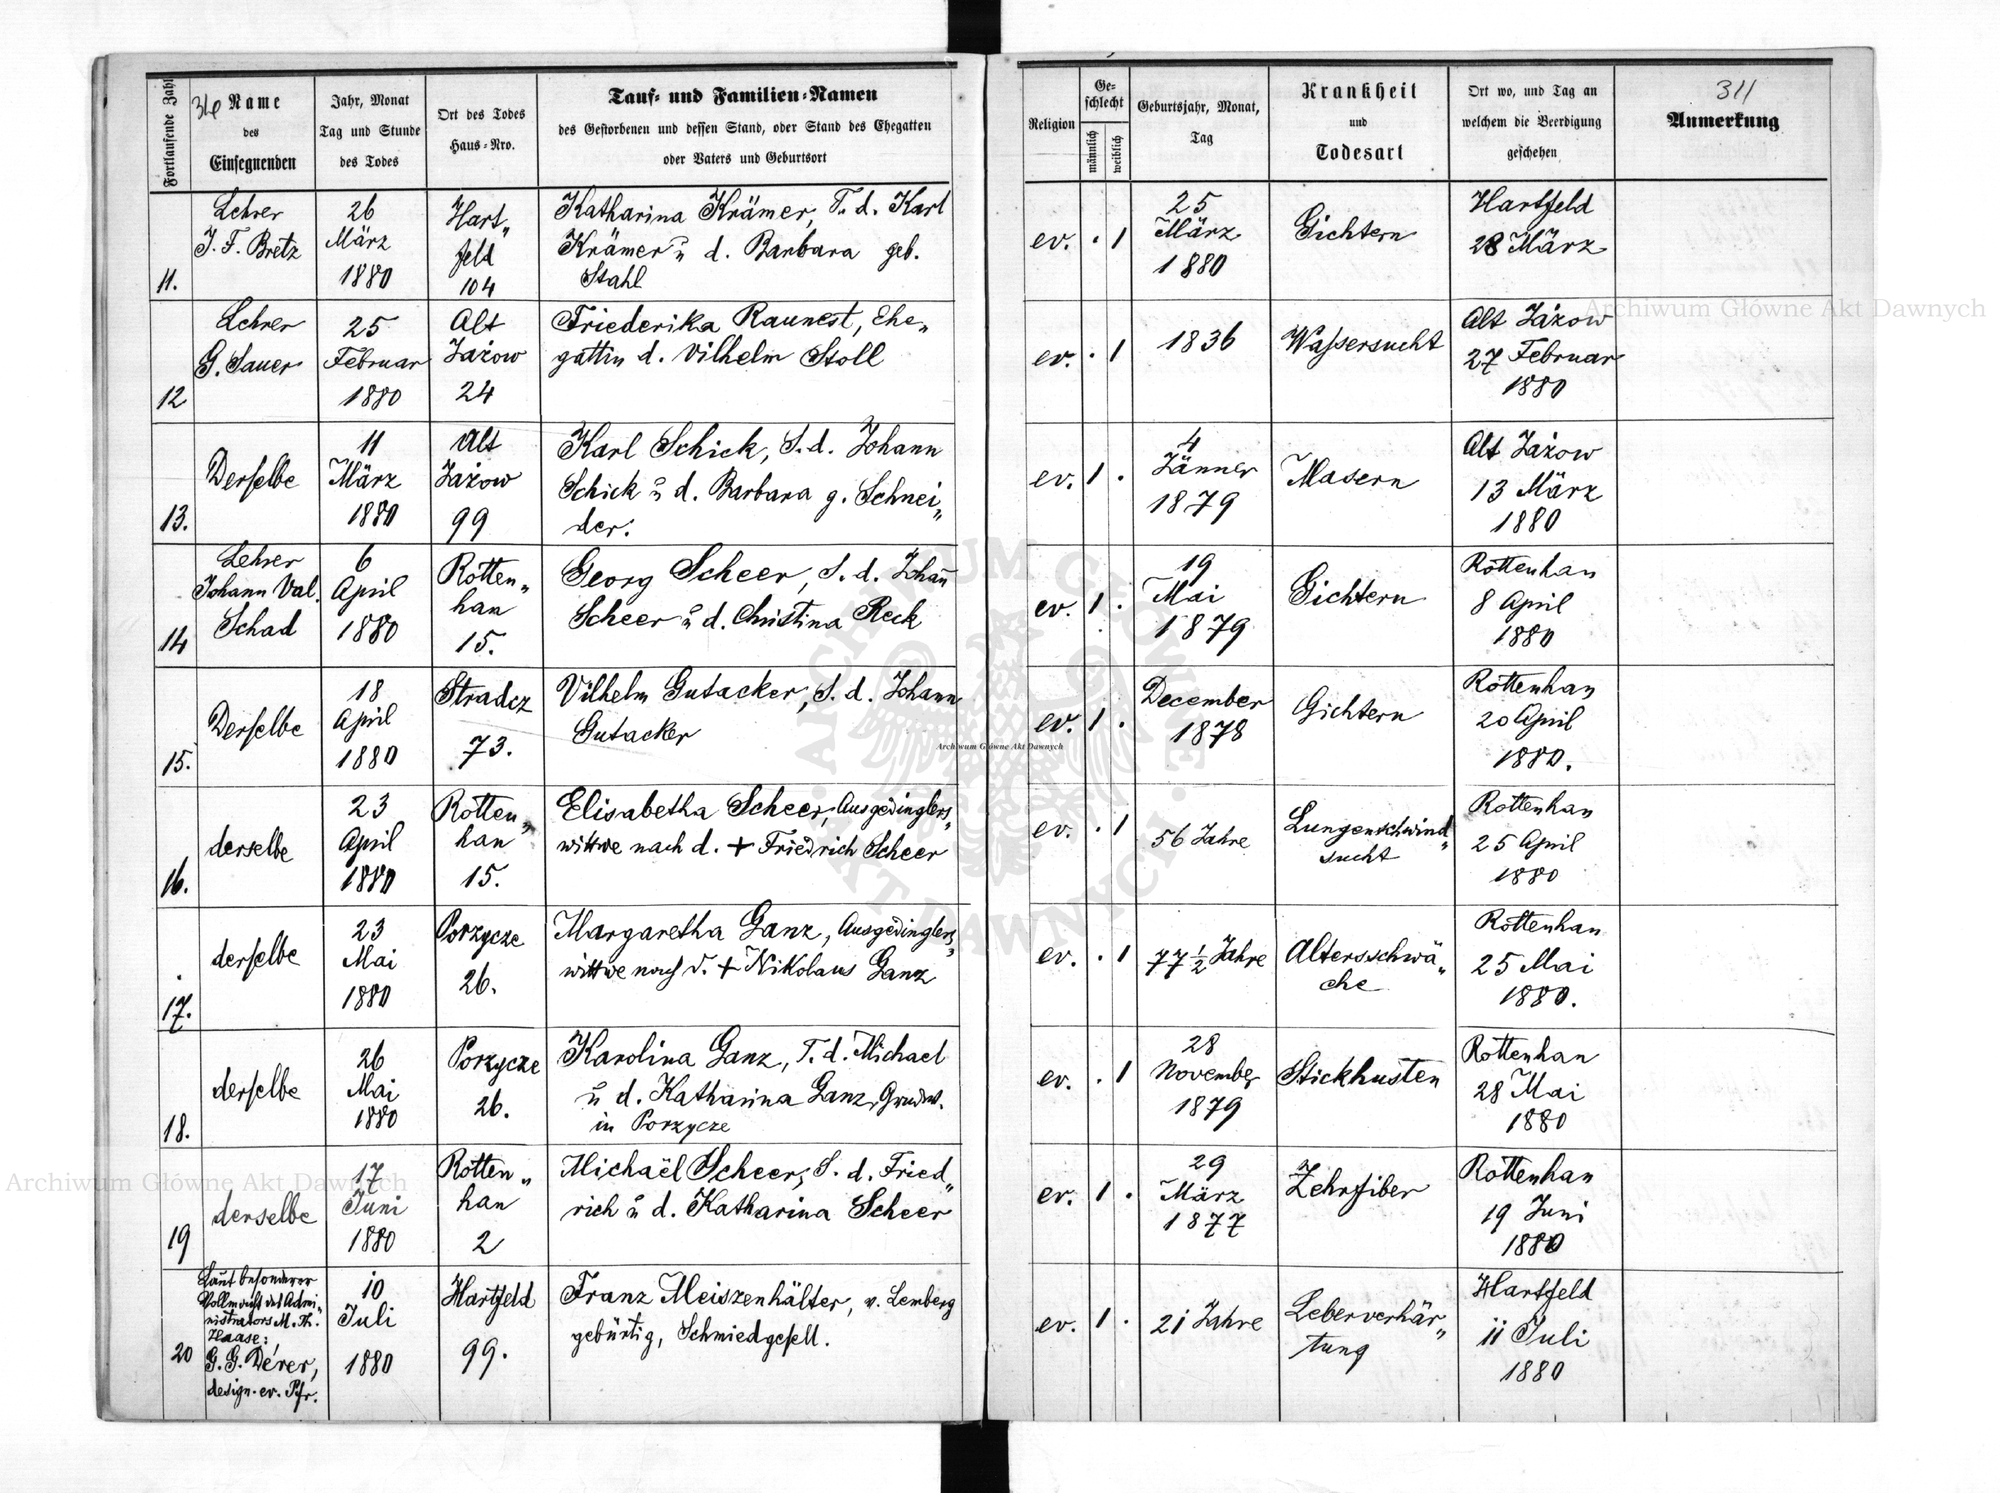 Fortlaufende Zahl
Name
des
Einsegnenden
Jahr, Monat
Tag und Stunde
des Todes
Ort des Todes
Haus-Nro.
Tauf- und Familien-Namen
des Gestorbenen und dessen Stand, oder Stand des Ehegatten
oder Vaters und Geburtsort
Religion
Geschlecht
männlich
weiblich
Geburtsjahr, Monat,
Tag
Krankheit
und
Todesart
Ort wo, und Tag an
welchem die Beerdigung
geschehen
311
Anmerkung
11.
Lehrer
J. F. Bretz
26
März
1880
Hart„
feld
104
Katharina Krämer, T. d. Karl
Krämer u d. Barbara geb.
Stahl
ev. . 1
25
März
1880
Gichtern
Hartfeld
28 März
12
Lehrer
G. Sauer
25
Februar
1880
Alt
Jażow
24
Friederika Raunest, Ehe„
gattin d. Vilhelm Stoll
ev. . 1
1836
Waßersucht
Alt Jażow
27 Februar
1880
13.
Derselbe
11
März
1880
Alt
Jażow
99
Karl Schick, S. d. Johann
Schick u d. Barbara g. Schnei„
der.
ev. 1 .
4
Jänner
1879
Masern
Alt Jażow
13 März
1880
14
Lehrer
Johann Val.
Schad
6
April
1880
Rotten„
han
15.
Georg Scheer, S. d. Johañ
Scheer u d. Christina Reck
ev. 1 .
19
Mai
1879
Gichtern
Rottenhan
8 April
1880
15.
Derselbe
18
April
1880
Stradcz
73.
Vilhelm Gutacker, S. d. Johann
Gutacker
ev. 1 .
December
1878
Gichtern
Rottenhan
20 April
1880.
16.
derselbe
23
April
1880
Rotten„
han
15.
Elisabetha Scheer, Ausgedinglers„
wittwe nach d. + Friedrich Scheer
ev. . 1
56 Jahre
Lungenschwind„
sucht
Rottenhan
25 April
1880
17.
derselbe
23
Mai
1880
Porzycze
26.
Margaretha Ganz, Ausgedinglers„
wittwe nach d. + Nikolaus Ganz
ev. . 1
77 1/2 Jahre
Altersschwä„
che
Rottenhan
25 Mai
1880.
18.
derselbe
26
Mai
1880
Porzycze
26.
Karolina Ganz, T. d. Michael
u d. Katharina Ganz, Grundw.
in Porzycze
ev. . 1
28
November
1879
Stickhusten
Rottenhan
28 Mai
1880
19
derselbe
17
Juni
1880
Rotten„
han
2
Michaël Scheer, S. d. Fried„
rich u d. Katharina Scheer
ev. 1 .
29
März
1877
Zehrfiber
Rottenhan
19 Juni
1880
20
Laut besonderer
Vollmacht des Admi„
nistrators M. Th.
Haase:
G. G. Dérer,
design. ev. Pfr.
10
Juli
1880
Hartfeld
99.
Franz Meiszenhälter, v. Lemberg
gebürtig, Schmiedgesell.
ev. 1 .
21 Jahre
Leberverhär„
tung
Hartfeld
11 Juli
1880
Archiwum Główne Akt Dawnych
Archiwum Główne Akt Dawnych
Archiwum Główne Akt Dawnych
ARCHIWUM GŁÓWNE AKT DAWNYCH